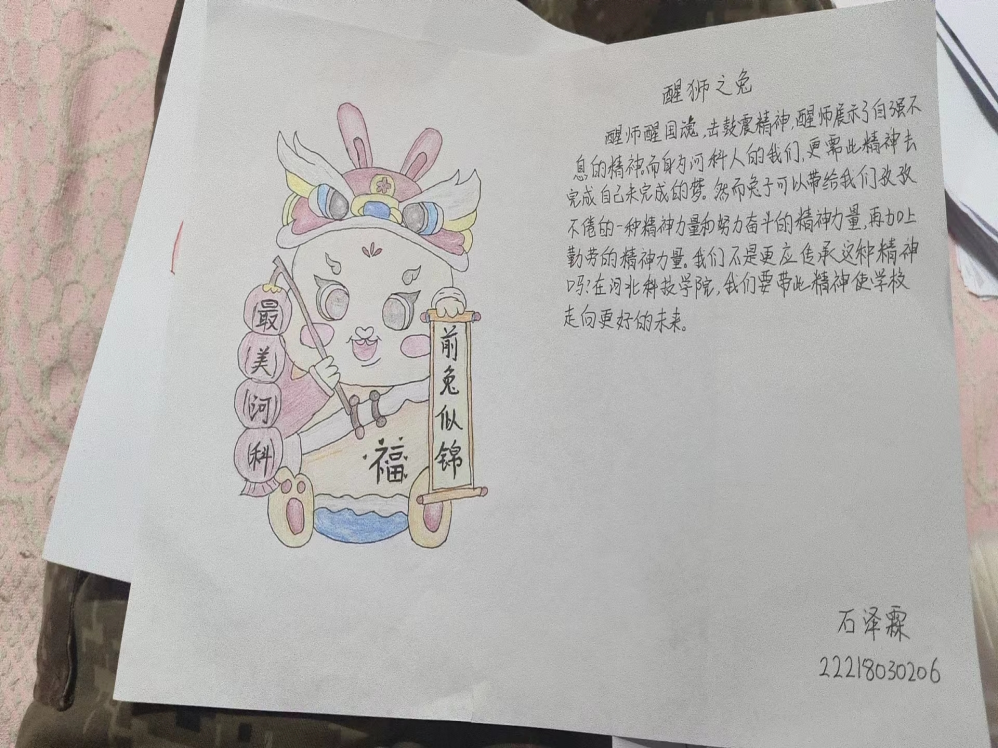 最美河科
前兔似锦
福
醒狮之兔
醒师醒国魂,击鼓震精神,醒师展示了自强不
息的精神。而身为河科人的我们,更需此精神去
完成自己未完成的梦。然而兔子可以带给我们孜孜
不倦的一种精神力量和努力奋斗的精神力量,再加上
勤劳的精神力量。我们不是更应传承这种精神
吗?在河北科技学院,我们要带此精神使学校
走向更好的未来。
石泽霖
22218030206